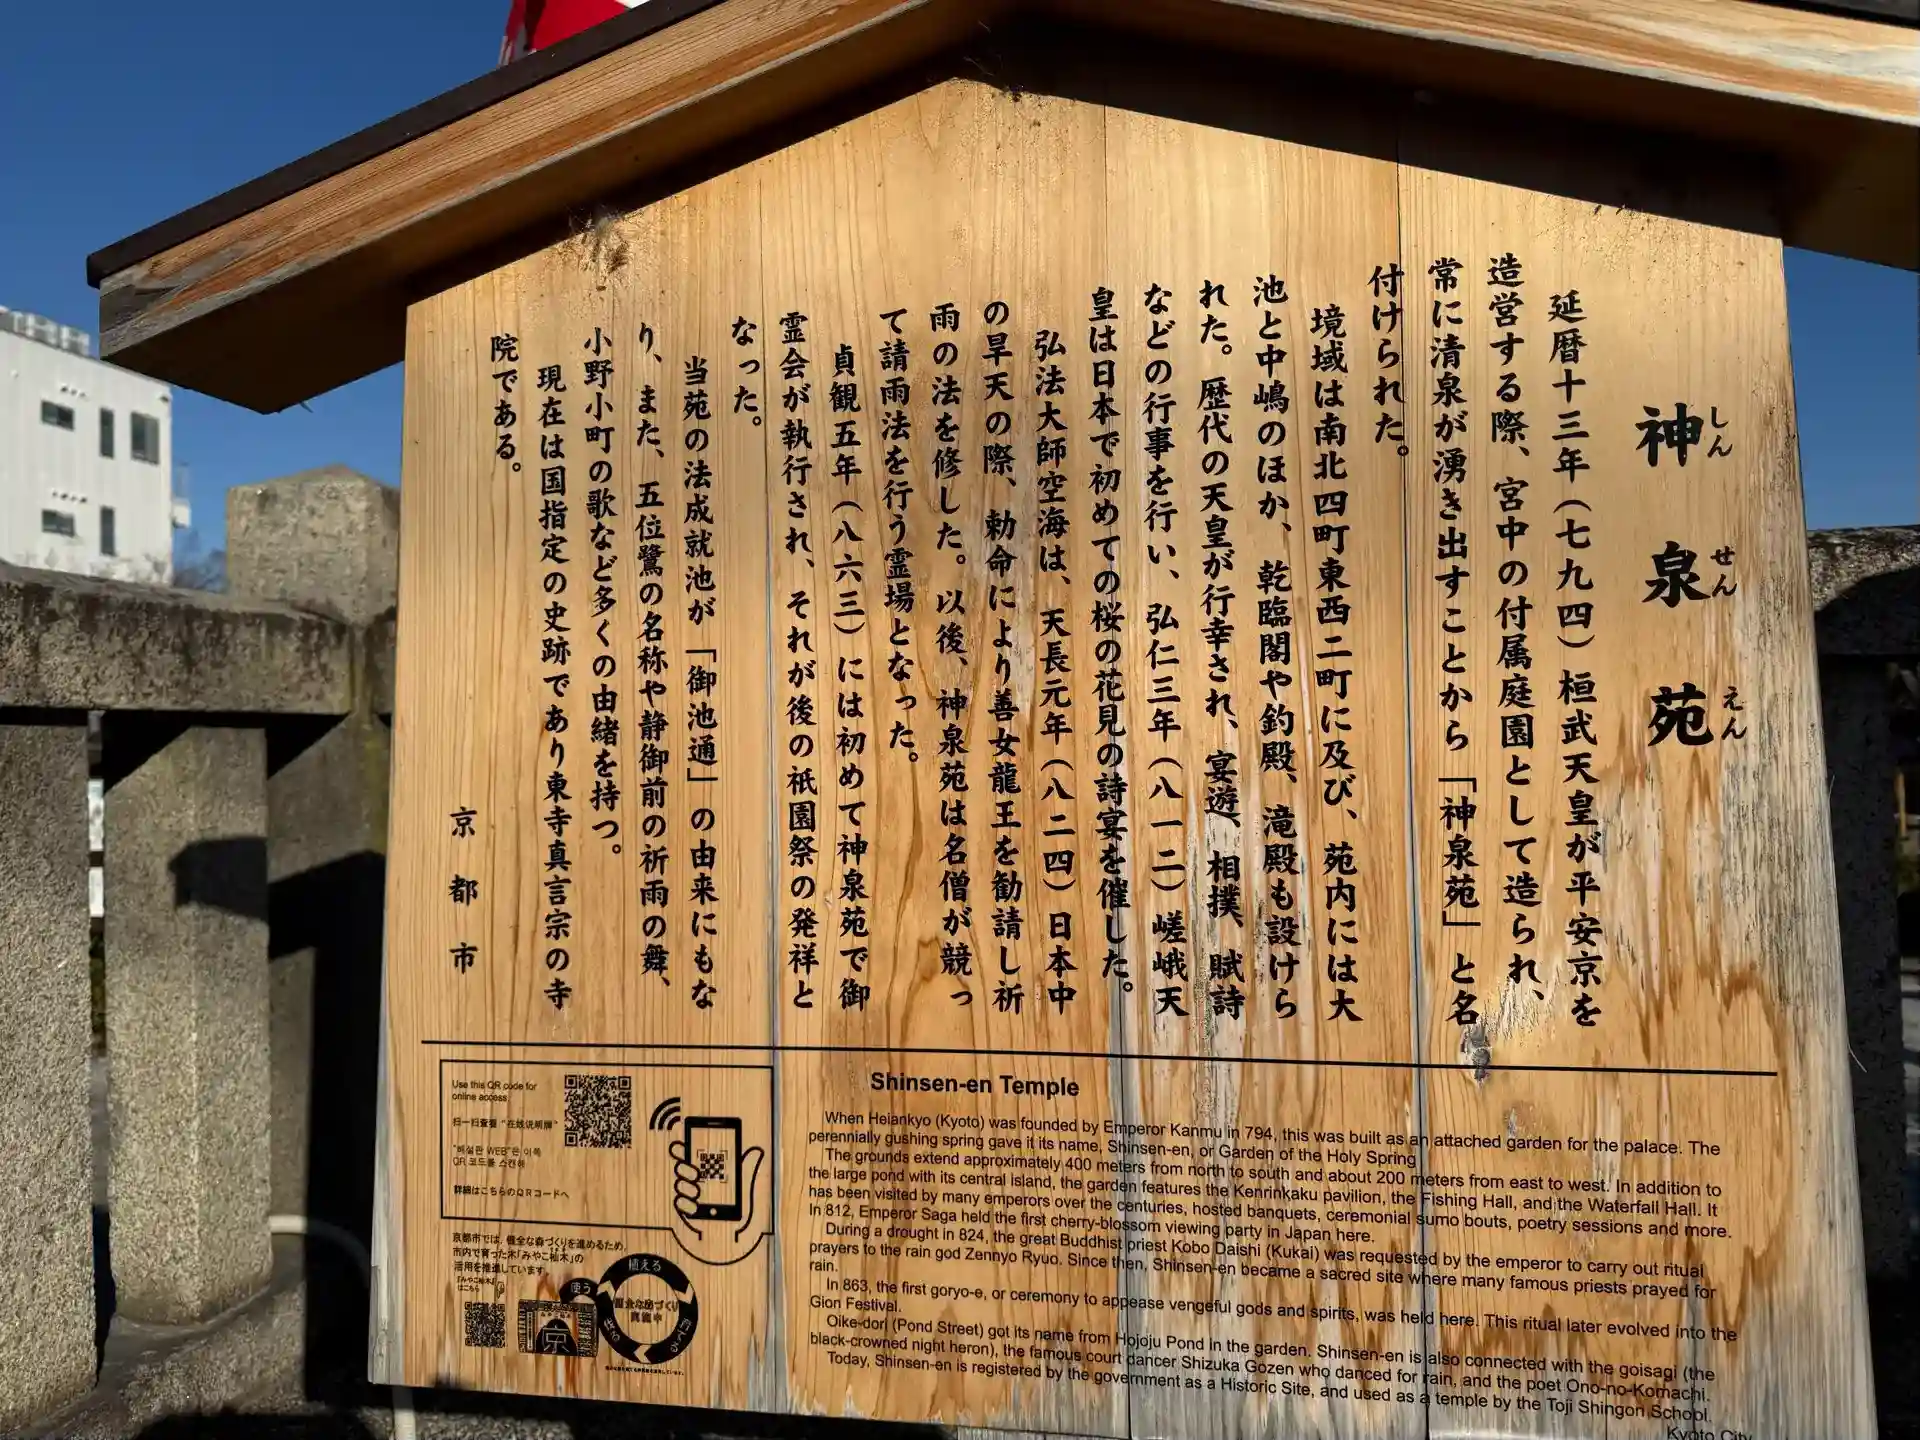 神泉苑
しんせんえん
延暦十三年(七九四)桓武天皇が平安京を
造営する際、宮中の付属庭園として造られ、
常に清泉が湧き出すことから「神泉苑」と名
付けられた。
境域は南北四町東西二町に及び、苑内には大
池と中嶋のほか、乾臨閣や釣殿、滝殿も設けら
れた。歴代の天皇が行幸され、宴遊、相撲、賦詩
などの行事を行い、弘仁三年(八一二)嵯峨天
皇は日本で初めての桜の花見の詩宴を催した。
弘法大師空海は、天長元年(八二四)日本中
の旱天の際、勅命により善女龍王を勧請し祈
雨の法を修した。以後、神泉苑は名僧が競っ
て請雨法を行う霊場となった。
貞観五年(八六三)には初めて神泉苑で御
霊会が執行され、それが後の祇園祭の発祥と
なった。
当苑の法成就池が「御池通」の由来にもな
り、また、五位鷺の名称や静御前の祈雨の舞、
小野小町の歌など多くの由緒を持つ。
現在は国指定の史跡であり東寺真言宗の寺
院である。
京都市
Use this QR code for
online access.
扫一扫查看“在线说明牌”
"해설판 WEB"은 이쪽
QR 코드를 스캔해
詳細はこちらのQRコードへ
京都市では、健全な森づくりを進めるため、
市内で育った木「みやこ杣木」の
活用を推進しています。
「みやこ杣木」
はこちら
植える
使う
京
Shinsen-en Temple
When Heiankyo (Kyoto) was founded by Emperor Kanmu in 794, this was built as an attached garden for the palace. The
perennially gushing spring gave it its name, Shinsen-en, or Garden of the Holy Spring
The grounds extend approximately 400 meters from north to south and about 200 meters from east to west. In addition to
the large pond with its central island, the garden features the Kenrinkaku pavilion, the Fishing Hall, and the Waterfall Hall. It
has been visited by many emperors over the centuries, hosted banquets, ceremonial sumo bouts, poetry sessions and more.
In 812, Emperor Saga held the first cherry-blossom viewing party in Japan here.
During a drought in 824, the great Buddhist priest Kobo Daishi (Kukai) was requested by the emperor to carry out ritual
prayers to the rain god Zennyo Ryuo. Since then, Shinsen-en became a sacred site where many famous priests prayed for
rain.
In 863, the first goryo-e, or ceremony to appease vengeful gods and spirits, was held here. This ritual later evolved into the
Gion Festival.
Oike-dori (Pond Street) got its name from Hojoju Pond in the garden. Shinsen-en is also connected with the goisagi (the
black-crowned night heron), the famous court dancer Shizuka Gozen who danced for rain, and the poet Ono-no-Komachi.
Today, Shinsen-en is registered by the government as a Historic Site, and used as a temple by the Toji Shingon School.
Kyoto City